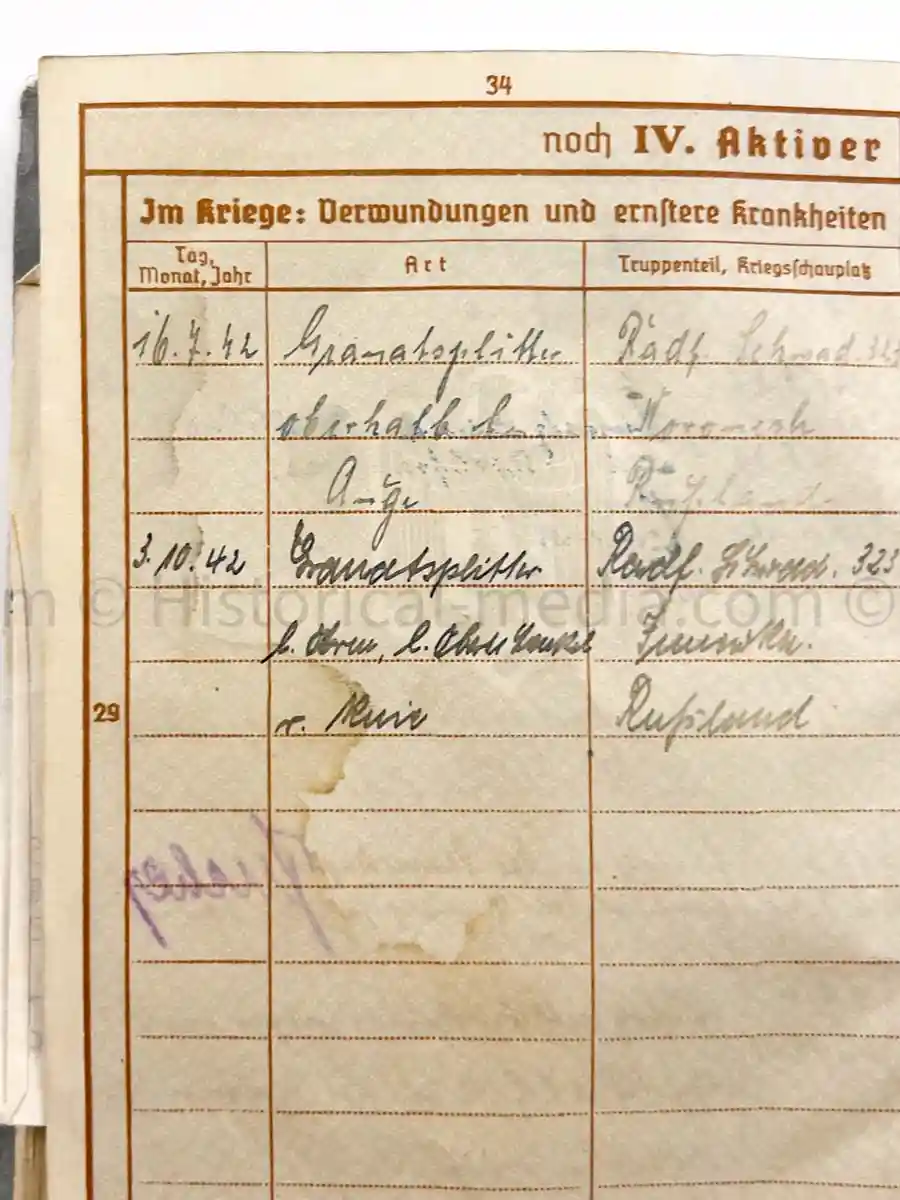 34
noch IV. Aktiver
Im Kriege: Verwundungen und ernstere Krankheiten
Tag, Monat, Jahr
Art
Truppenteil, Kriegsschauplatz
16.7.42 Granatsplitter Radf. Schwad 323
oberhalb l. Woronesh
Auge Rußland
3.10.42 Granatsplitter Radf. Schwad. 323
l. Arm, l. Oberschenkel
29 r. Knie Rußland
m © Historical-media.com ©